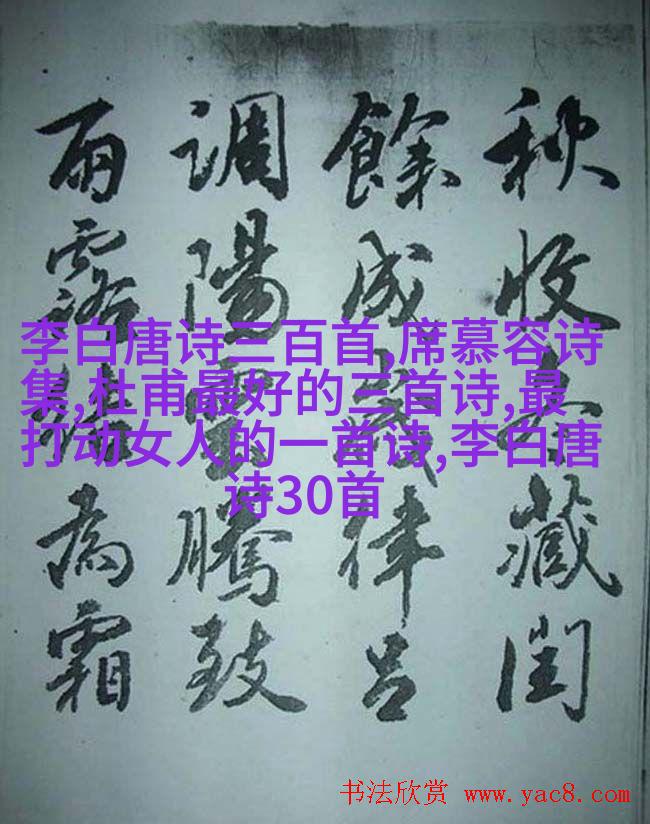 秋收冬藏閏
餘成歲律呂
調陽雲騰致
雨露結為霜
李白唐诗三百首,席慕容诗
集,杜甫最好的三首诗,最
打动女人的一首诗,李白唐
诗30首
书法欣赏 www.yac8.com